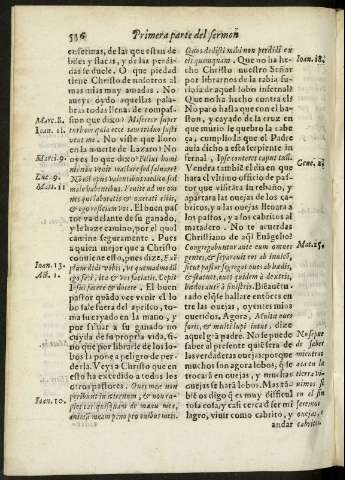 536 Primera parte del sermõ
enfermas, de las que estan debiles
y flacas, y de las perdidas
se duele. O que piedad
tiene Christo de nosotros al
mas mias muy amadas. No
aueys oydo aquellas palabras
todas llenas de compassion
que dixo? Misereor super
turbam
ut me. No viste que lloro
en la muerte de Lazaro? No
veys lo que dixo? Filius hominis
non venit
male habentibus. Venite ad me omnes
qui laboratis & onerati estis,
& ego reficiam vos. El buen pastor
va delante de su ganado,
y le haze camino, por el qual
camine seguramente. Pues
a quien mejor que a Christo
conuiene esto, pues dize, Exemplum
dedi vobis, vt quemadmodũ
ego feci, & vos faciatis. Cepit
Iesus facere & docere. El buen
pastor quãdo vee venir el lobo
sale fuera del aprisco, toma
su cayado en la mano, y
por saluar a su ganado no
cuyda de su propria vida, sino
que por librarle de los lobos
la pone a peligro de perderla.
Veys a Christo que en
esto ha excedido a todos los
otros pastores. Oues meæ non
peribunt in æternum, & non rapiet
eas quisquam de manu mea,
animam meam pono pro ouibus meis.
Marc. 8.
Ioan. 11.
Luc. 9.
Matt. 11
Ioan. 13.
Act. 1.
Ioan. 10.
Quos dedisti mihi non perdidi ex
eis quemquam. Que no ha hecho
Christo nuestro Señor
por librarlas de la rabia furiosa
de aquel lobo infernal?
Que no ha hecho contra el?
No paró hasta que con el baston,
y cayado de la cruz en
que murio le quebro la cabeça,
cumpliolo que el Padre
auia dicho a esta serpiente infernal.
Ipse conteret caput tuũ.
Vendra tambiẽ el dia en que
hara el vltimo officio de pastor
que visitara su rebaño, y
apartara las ouejas de los cabritos,
y a las ouejas lleuara a
los pastos, y a los cabritos al
matadero. No te acuerdas
Christiano de aql Euãgelio?
Congregabuntur ante eum omnes
gentes, & separabit eos ab inuicẽ,
sicut pastor segregat oues ab hædis,
& statuet, oues quidem à dextris,
hædos autẽ à sinistris. Bienauẽturado
el q̃ se hallare entõces en
las ouejas, oyentes mios
queridos. Agora, Multæ oues
foris, & multi lupi intus, dize
aquel grã padre. No se puede
saber al presente quiẽ sera de
las verdaderas ouejas: porque
muchos son agora lobos, q̃ se
trocarã en ouejas, y muchas
ouejas se harã lobos. Mas tãbiẽ
os digo q̃ es muy difficultosa
cosa, y casi cerca de ser milagro,
viuir como cabrito, y
andar
Ioan. 18.
Gene. 3.
Mat. 25.
No se puede
de saber
mientras
aca en la
tierra viuimos
si
en el fin
seremos
ouejas, o
cabritos.